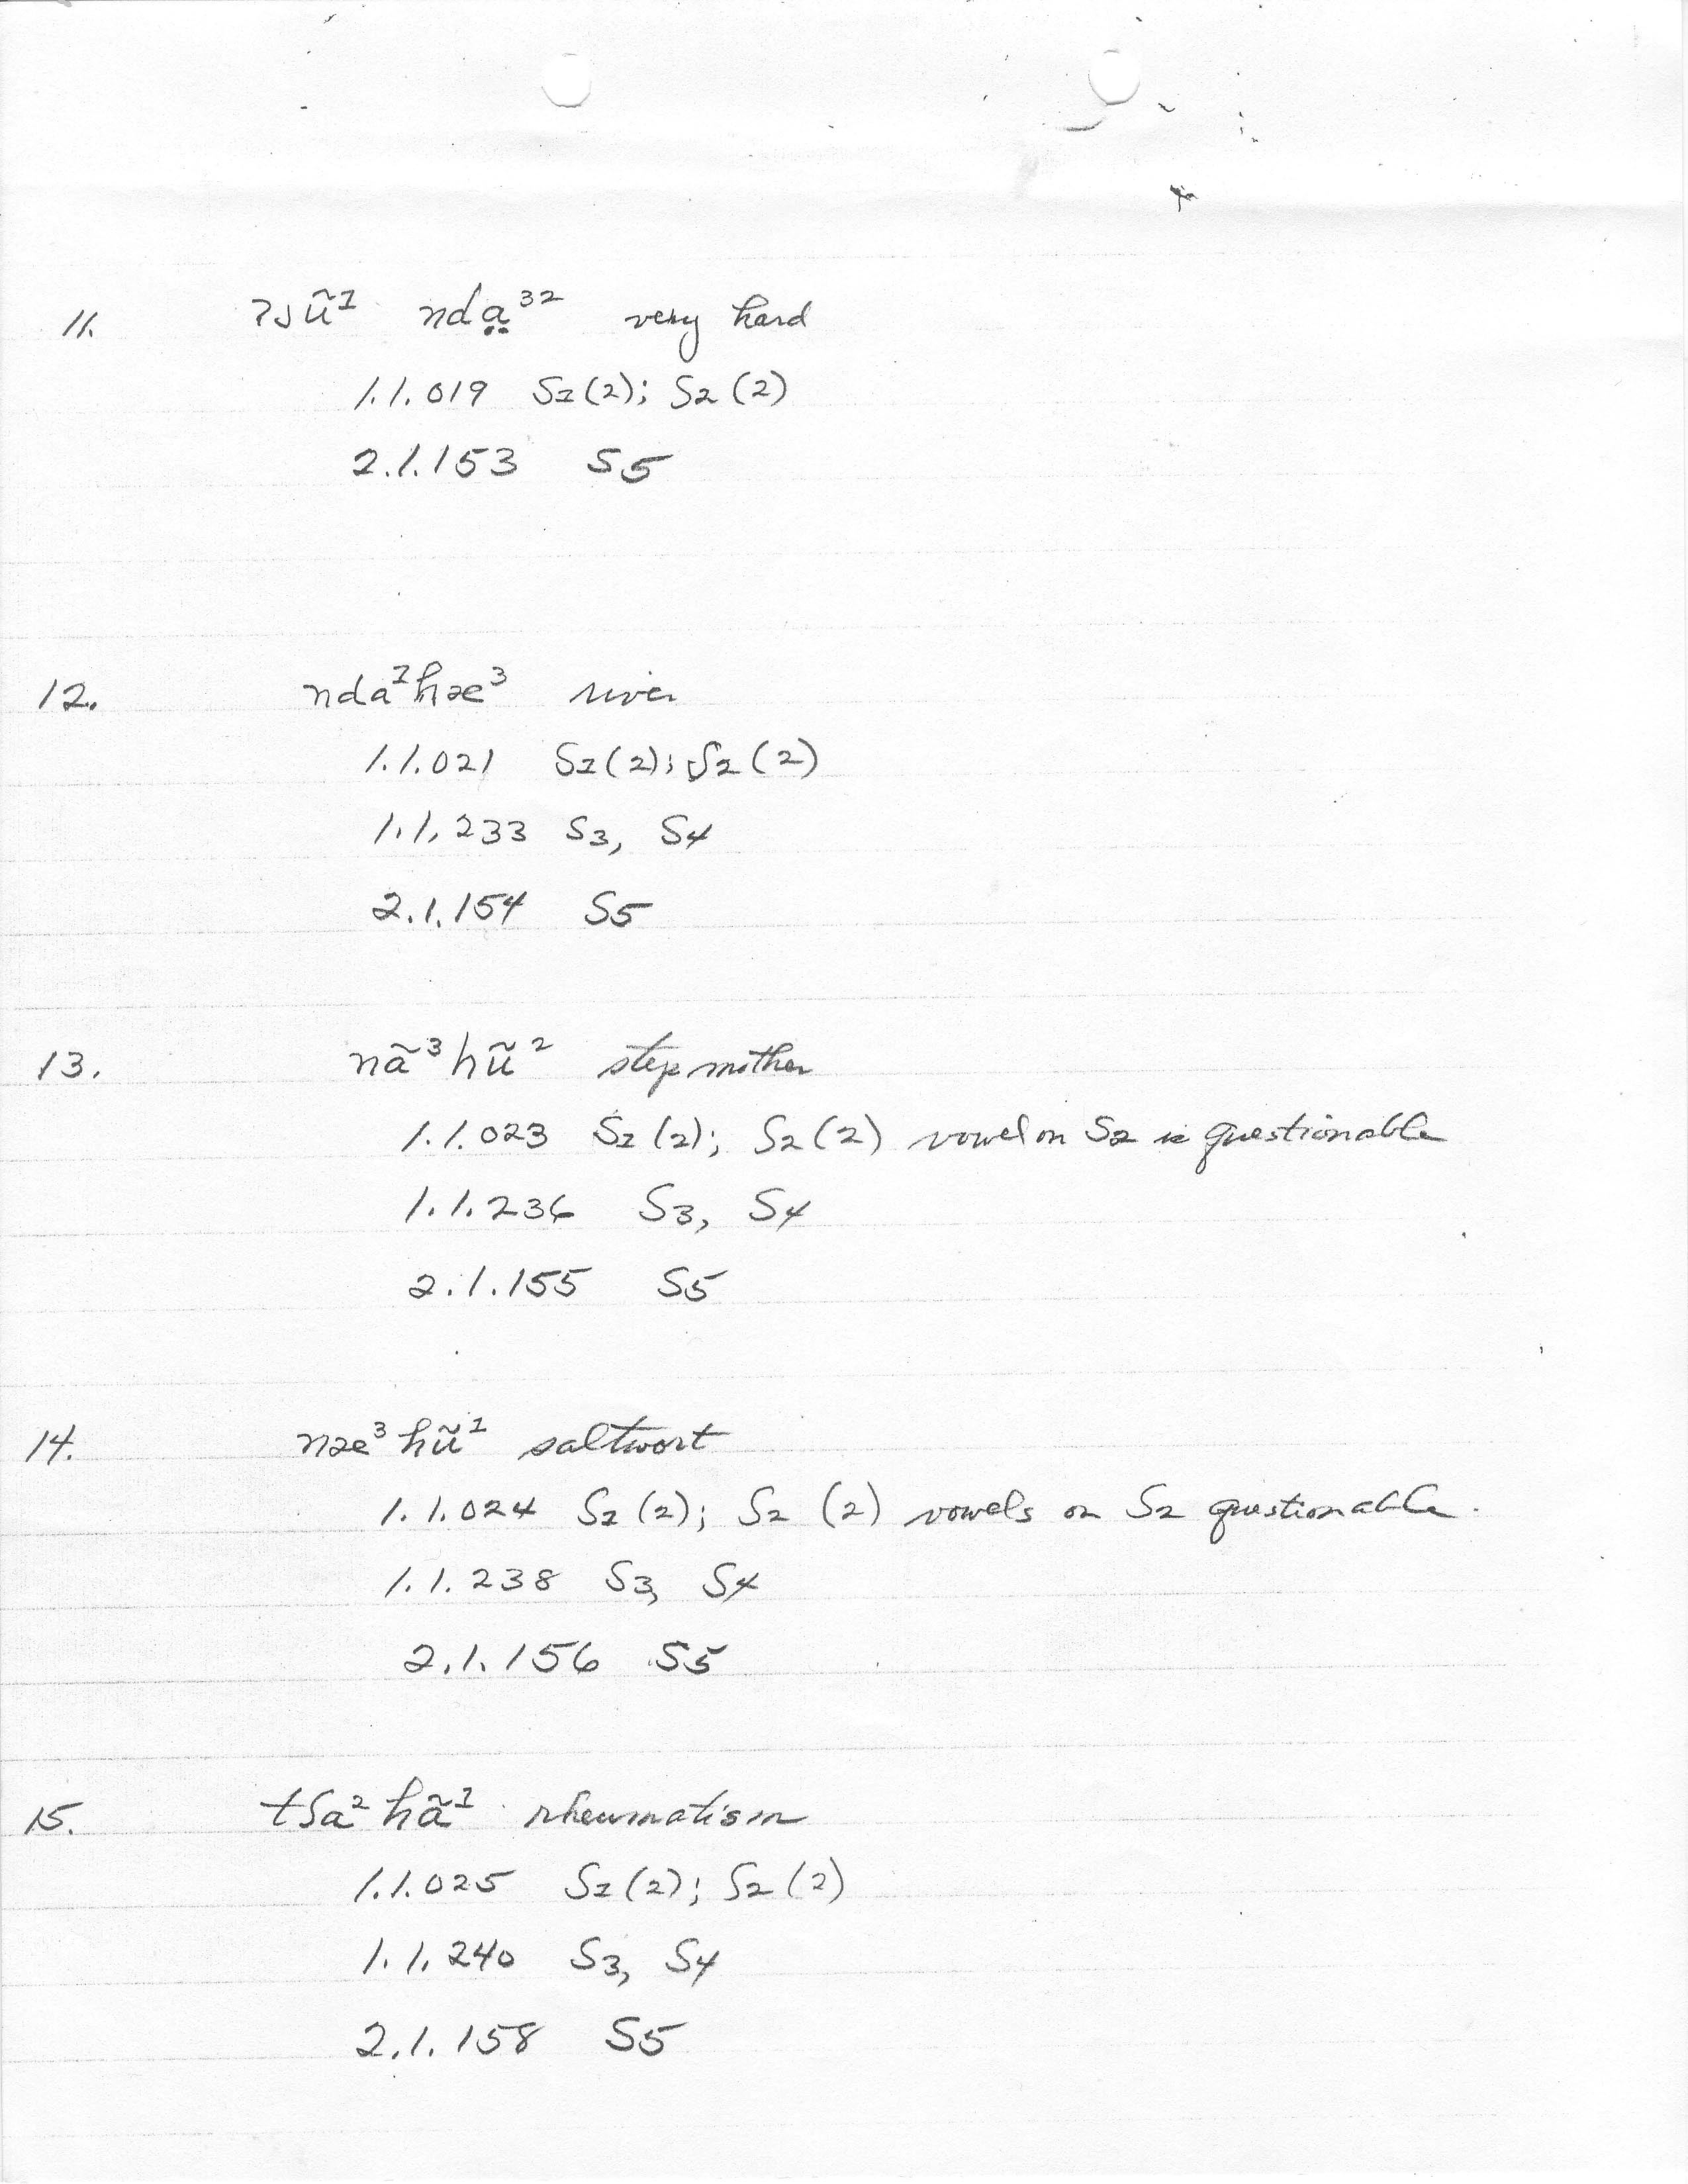 11. ʔsũ¹ nda̤³² very hard
1.1.019 S1(2); S2(2)
2.1.153 S5
12. nda¹hæ³ river
1.1.021 S1(2); S2(2)
1.1.233 S3, S4
2.1.154 S5
13. nã³hũ² stepmother
1.1.023 S1(2); S2(2) vowel on S2 is questionable
1.1.236 S3, S4
2.1.155 S5
14. næ³hũ¹ saltwort
1.1.024 S1(2); S2(2) vowels on S2 questionable.
1.1.238 S3, S4
2.1.156 S5
15. tʃa²hã¹ rheumatism
1.1.025 S1(2); S2(2)
1.1.240 S3, S4
2.1.158 S5